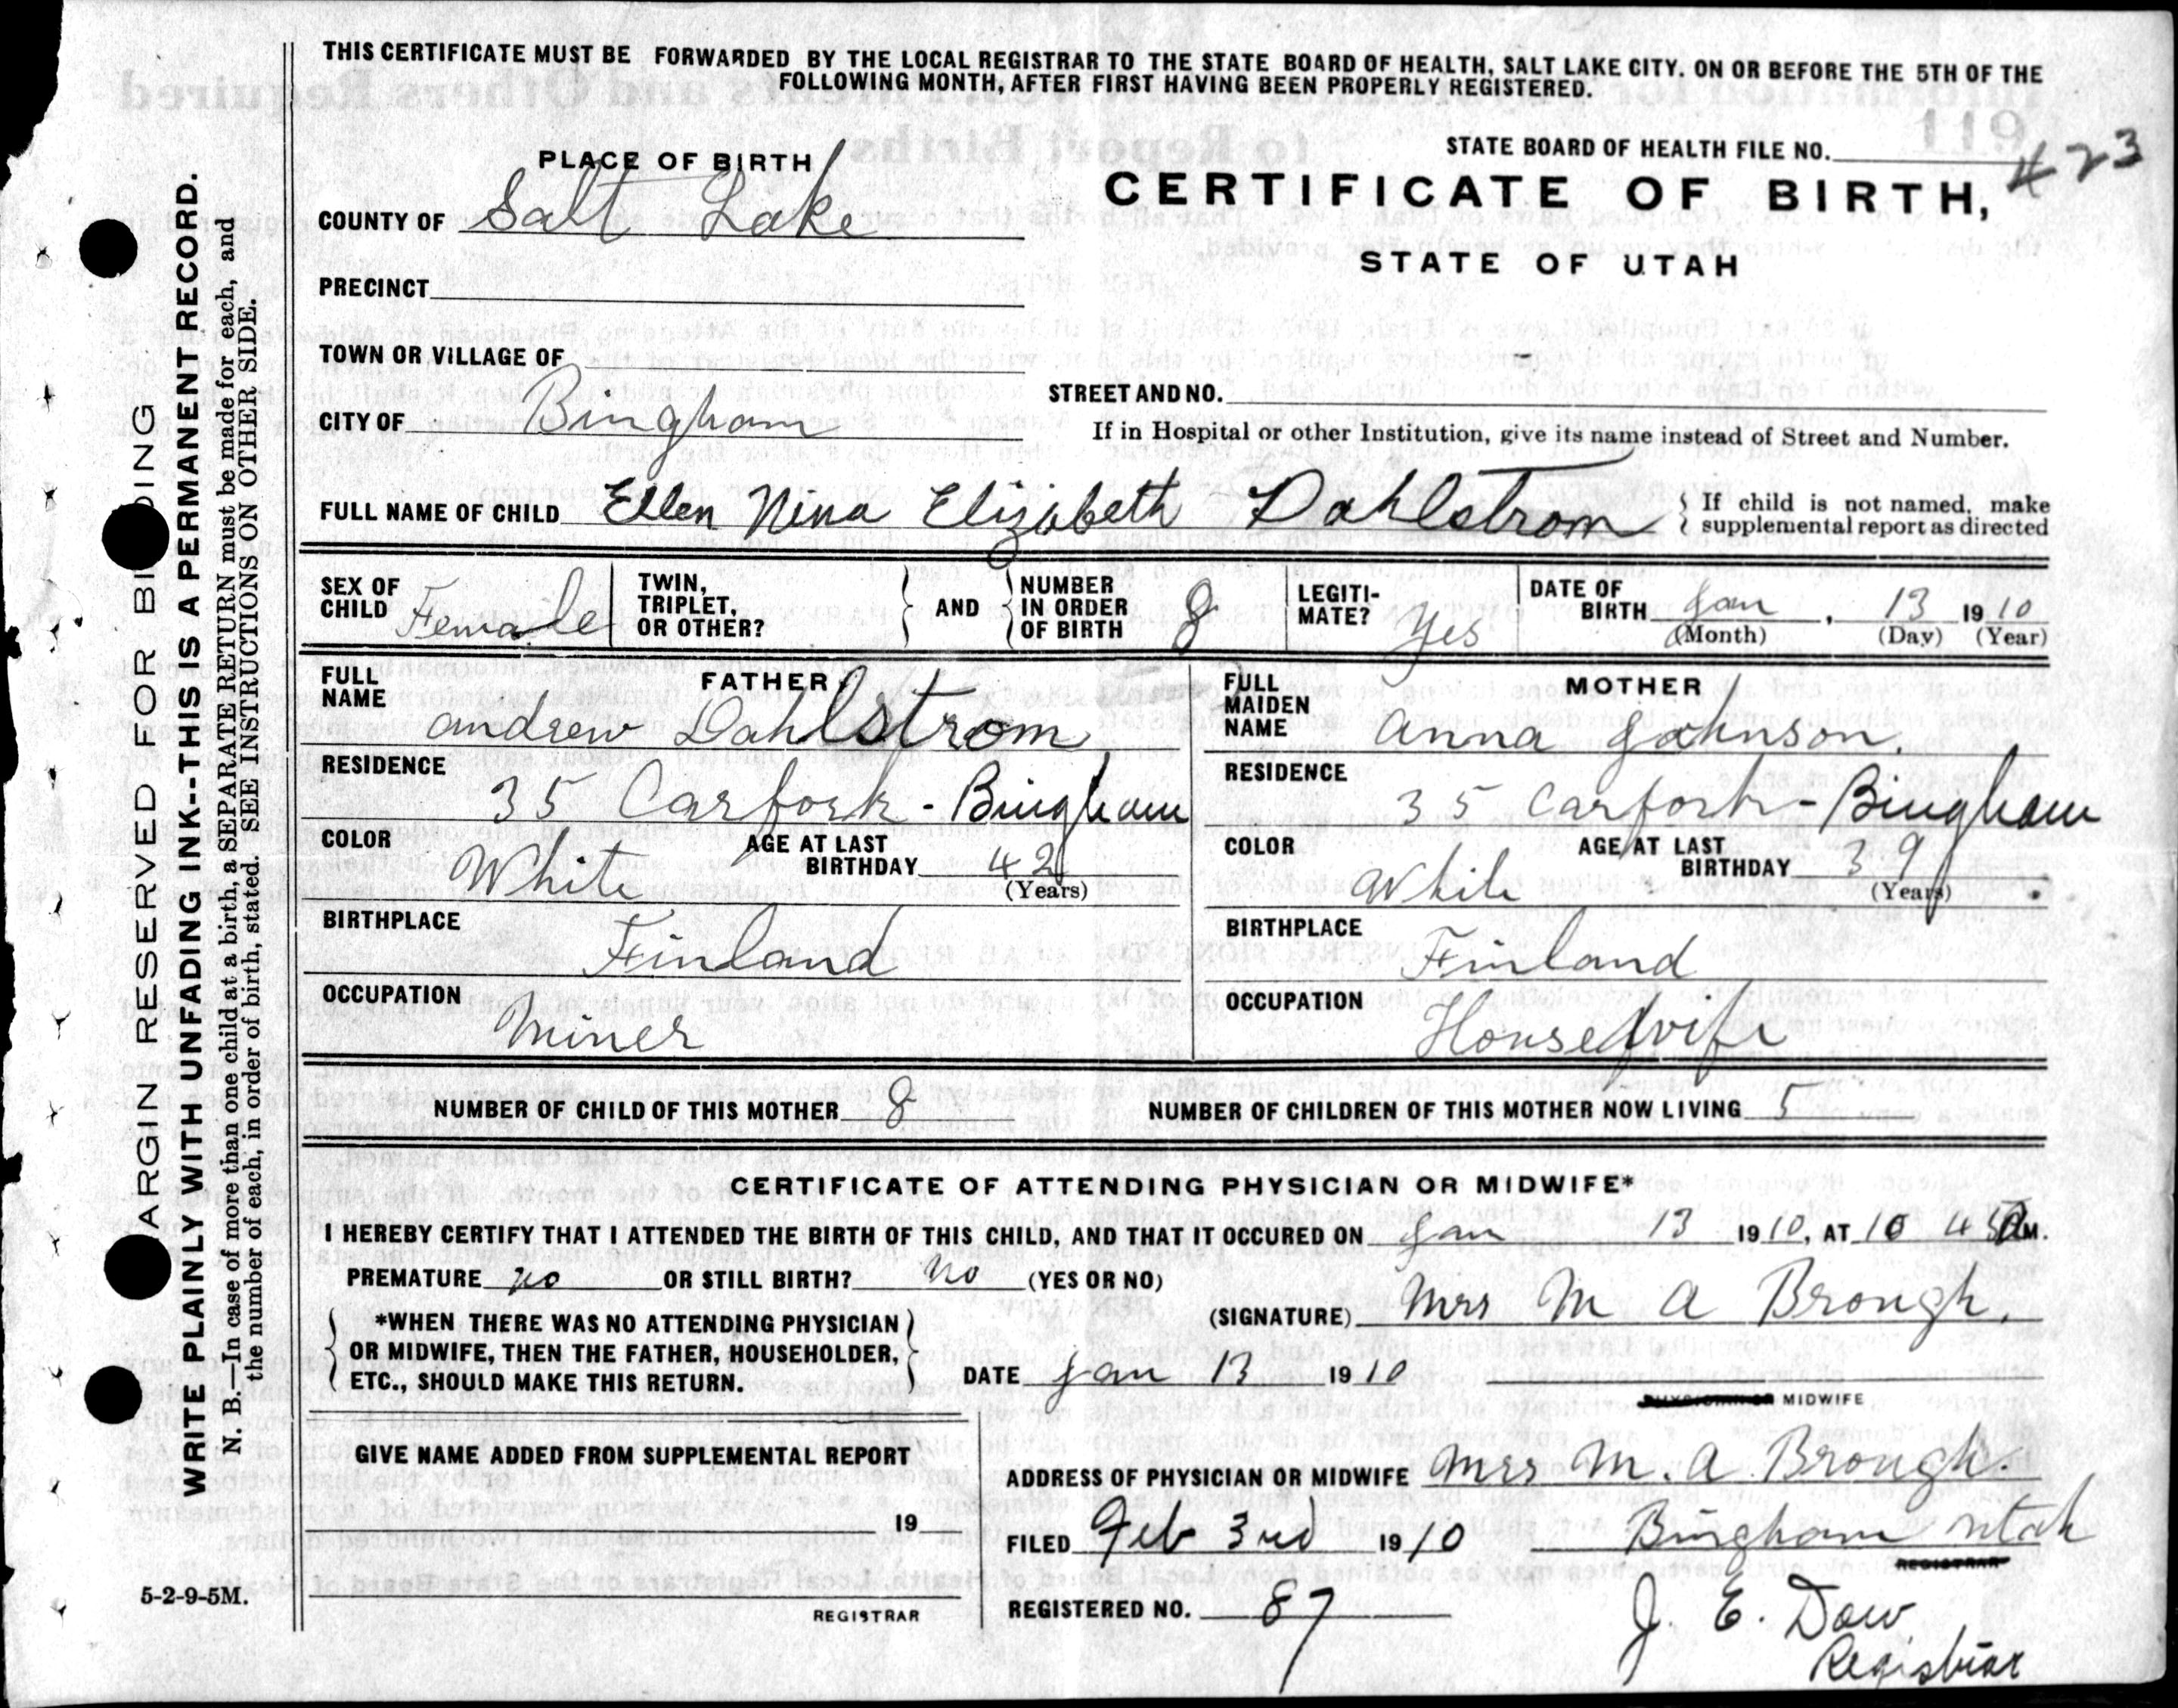 THIS CERTIFICATE MUST BE FORWARDED BY THE LOCAL REGISTRAR TO THE STATE BOARD OF HEALTH, SALT LAKE CITY. ON OR BEFORE THE 5TH OF THE
FOLLOWING MONTH, AFTER FIRST HAVING BEEN PROPERLY REGISTERED.
STATE BOARD OF HEALTH FILE NO. 423
CERTIFICATE OF BIRTH,
STATE OF UTAH
PLACE OF BIRTH
COUNTY OF Salt Lake
PRECINCT
TOWN OR VILLAGE OF
CITY OF Bingham
STREET AND NO.
If in Hospital or other Institution, give its name instead of Street and Number.
FULL NAME OF CHILD Ellen Nina Elizabeth Dahlstrom
{ If child is not named, make
supplemental report as directed
SEX OF
CHILD Female
TWIN,
TRIPLET,
OR OTHER?
} AND {
NUMBER
IN ORDER
OF BIRTH 8
LEGITI-
MATE? Yes
DATE OF
BIRTH Jan , 13 1910
(Month) (Day) (Year)
FATHER
FULL
NAME Andrew Dahlstrom
RESIDENCE
35 Carfork - Bingham
COLOR White
AGE AT LAST
BIRTHDAY 42
(Years)
BIRTHPLACE
Finland
OCCUPATION
Miner
MOTHER
FULL
MAIDEN
NAME Anna Johnson.
RESIDENCE
35 Carfork - Bingham
COLOR White
AGE AT LAST
BIRTHDAY 39
(Years)
BIRTHPLACE
Finland
OCCUPATION
Housewife
NUMBER OF CHILD OF THIS MOTHER 8 NUMBER OF CHILDREN OF THIS MOTHER NOW LIVING 5
CERTIFICATE OF ATTENDING PHYSICIAN OR MIDWIFE*
I HEREBY CERTIFY THAT I ATTENDED THE BIRTH OF THIS CHILD, AND THAT IT OCCURED ON Jan 13 1910, AT 10 45 AM.
PREMATURE no OR STILL BIRTH? no (YES OR NO)
(SIGNATURE) Mrs M A Brough.
*WHEN THERE WAS NO ATTENDING PHYSICIAN
OR MIDWIFE, THEN THE FATHER, HOUSEHOLDER,
ETC., SHOULD MAKE THIS RETURN.
DATE Jan 13 1910
PHYSICIAN OR MIDWIFE
GIVE NAME ADDED FROM SUPPLEMENTAL REPORT
19
REGISTRAR
ADDRESS OF PHYSICIAN OR MIDWIFE Mrs M. A Brough.
FILED Feb 3rd 1910 Bingham Utah
REGISTRAR
REGISTERED NO. 87
J. E. Dow
Registrar
5-2-9-5M.
ARGIN RESERVED FOR BI DING
WRITE PLAINLY WITH UNFADING INK--THIS IS A PERMANENT RECORD.
N. B.—In case of more than one child at a birth, a SEPARATE RETURN must be made for each, and
the number of each, in order of birth, stated. SEE INSTRUCTIONS ON OTHER SIDE.